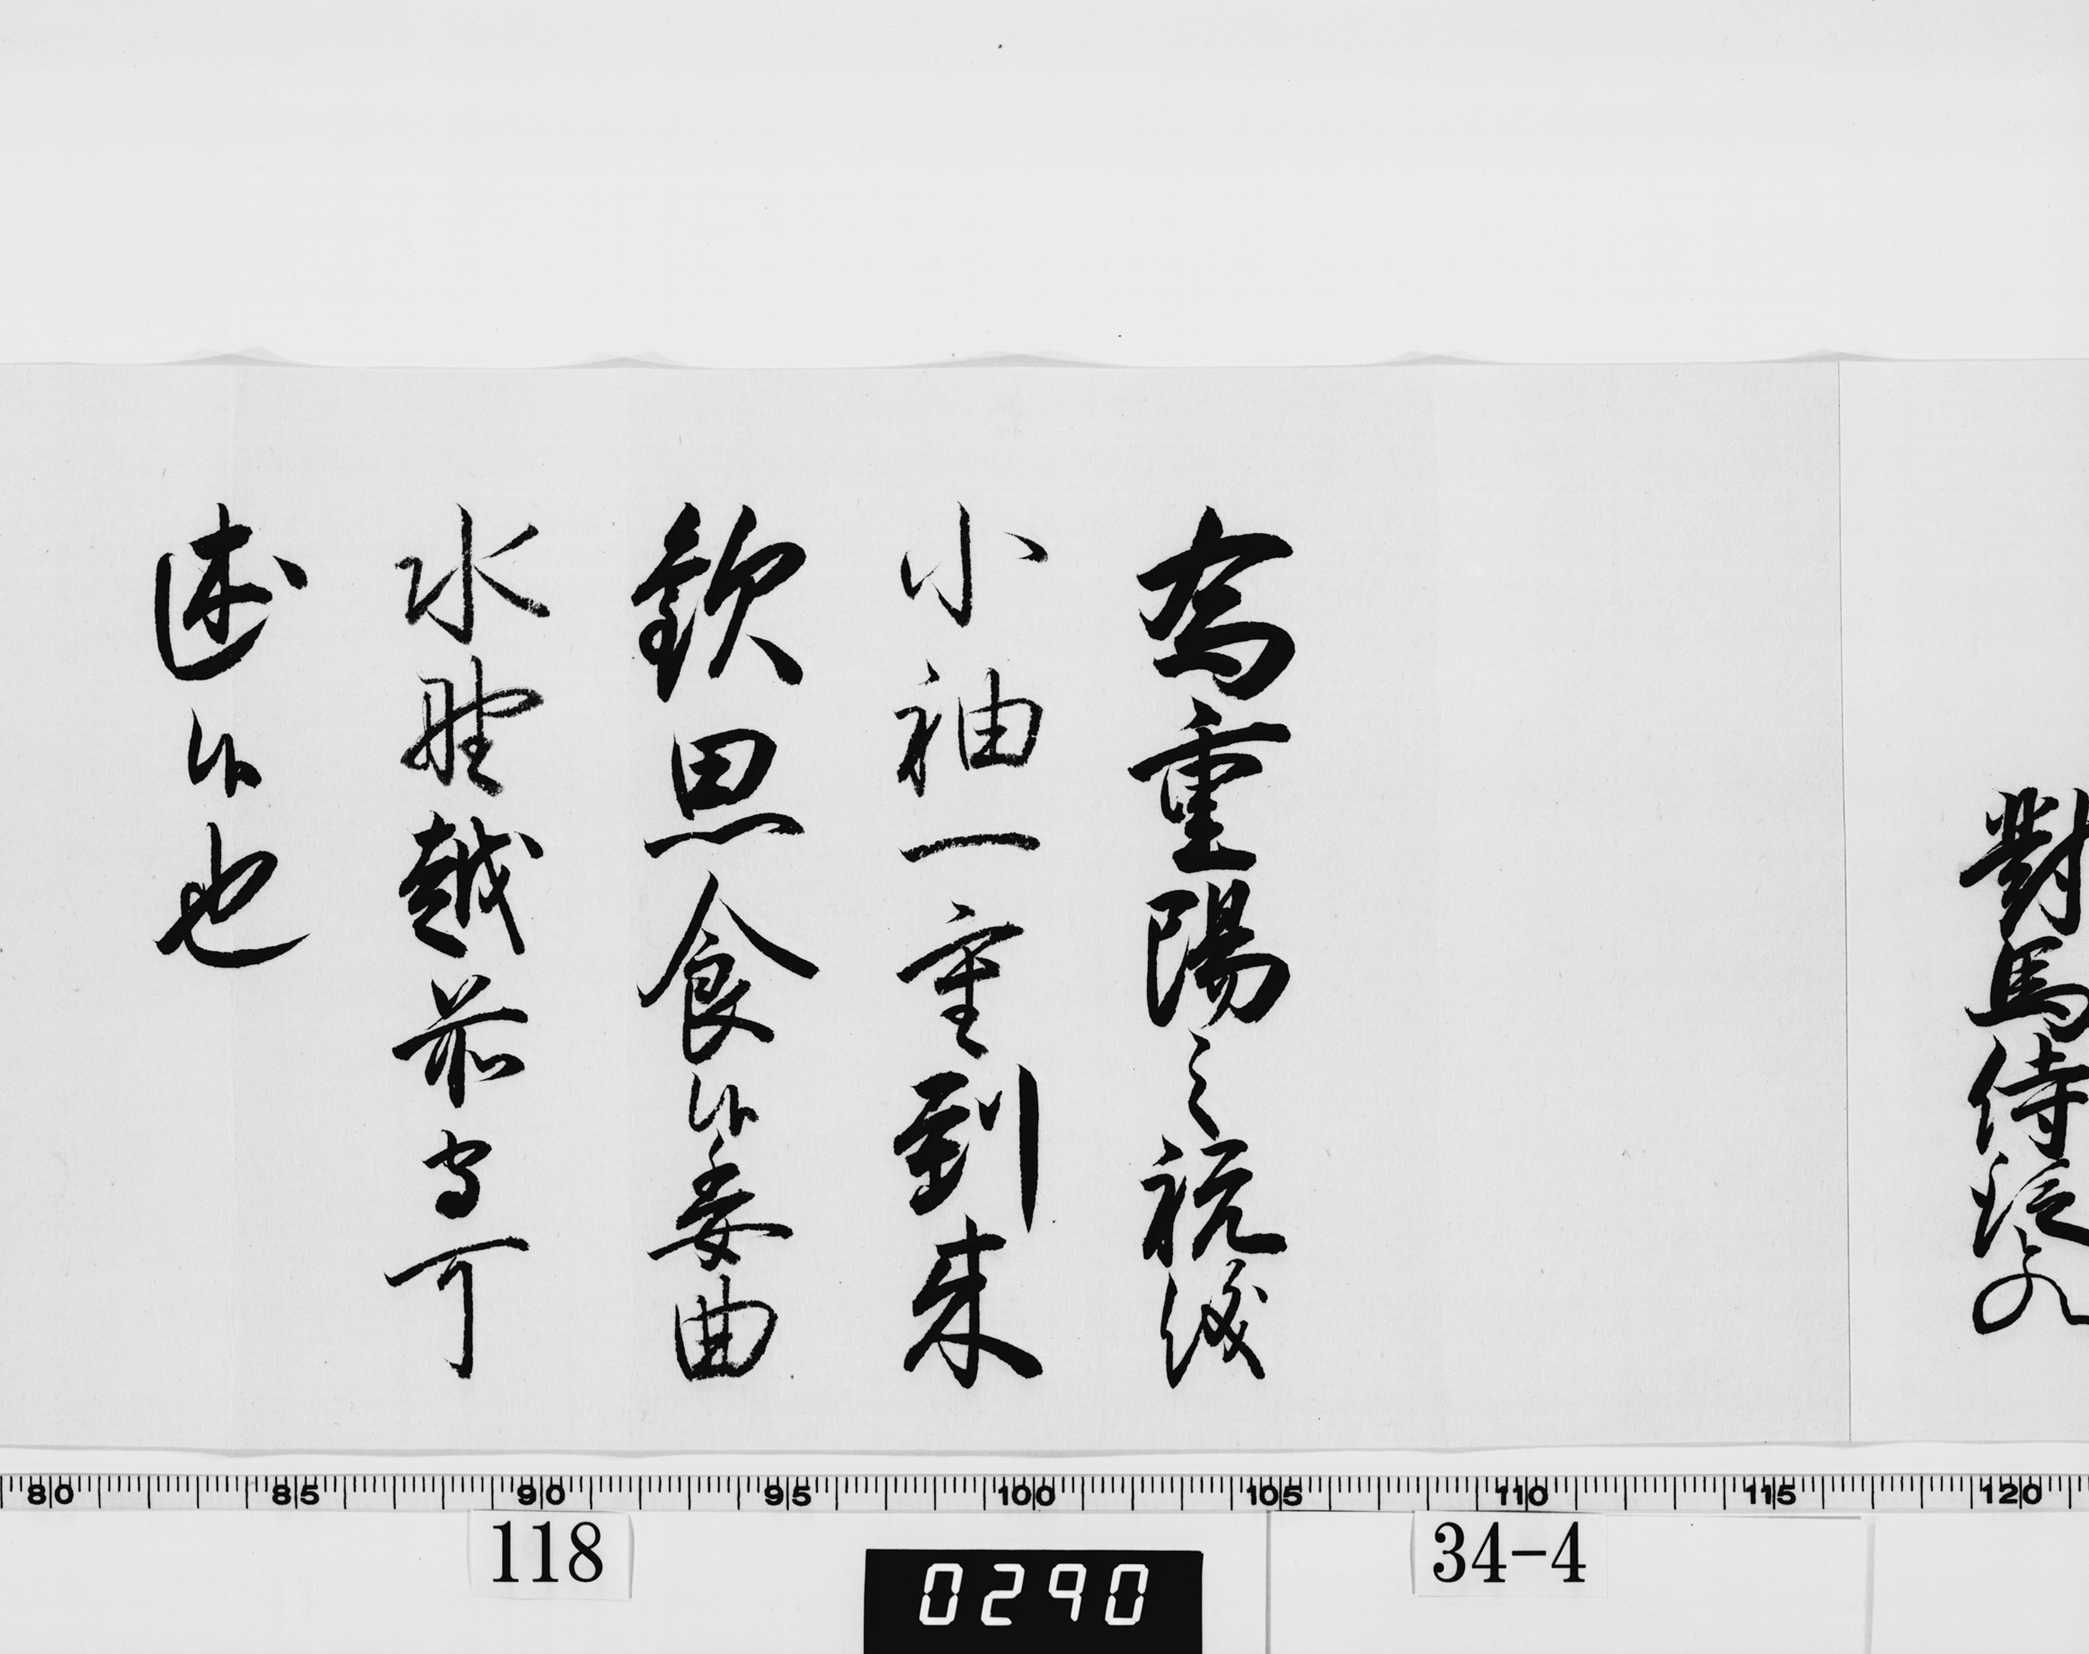 對馬侍従殿
為重陽之祝儀
小袖一重到来
歓思食候委曲
水野越前守可
述候也
80 85 90 95 100 105 110 115 120
118
34-4
0290